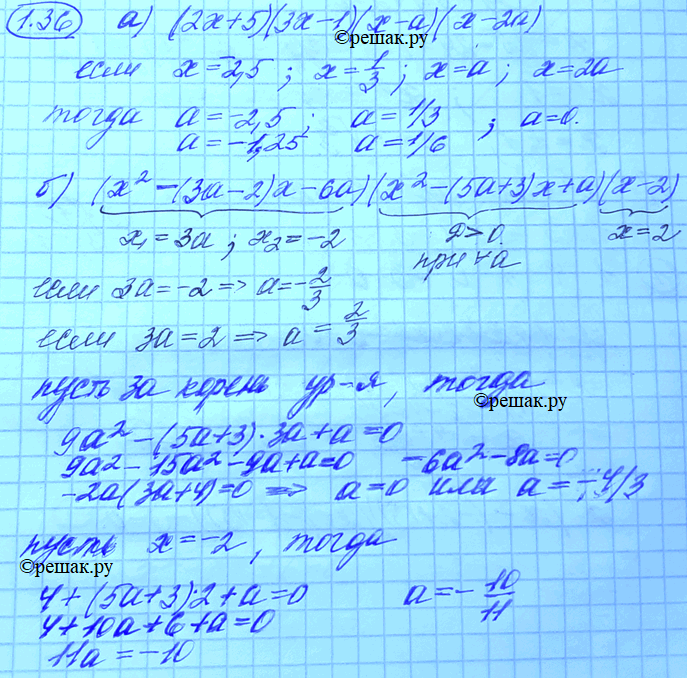 1.36 а) (2x+5)(3x-1)(x-a)(x-2a)
©решак.ру
если x=-2,5 ; x=1/3 ; x=a ; x=2a
тогда a=-2,5 ; a=1/3 ; a=0.
a=-1,25 a=1/6
б) (x²-(3a-2)x-6a)(x²-(5a+3)x+a)(x-2)
x₁=3a ; x₂=-2 D>0. x=2
при ∀a
если 3a=-2 => a=-2/3
если 3a=2 => a=2/3
пусть 3a корень ур-я, тогда
©решак.ру
9a²-(5a+3)·3a+a=0
9a²-15a²-9a+a=0 -6a²-8a=0
-2a(3a+4)=0 => a=0 или a=-4/3
пусть x=-2, тогда
©решак.ру
4+(5a+3)·2+a=0 a=-10/11
4+10a+6+a=0
11a=-10